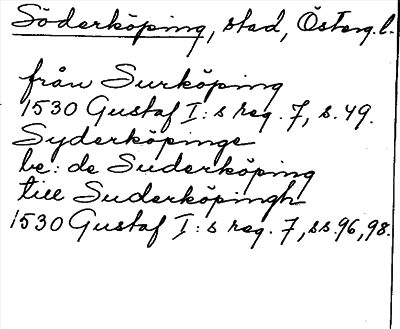 Söderköping, stad, Österg.l.
från Surköping
1530 Gustaf I:s reg. 7, s. 49.
Syderköpinge
be: de Suderköping
till Suderköpingh
1530 Gustaf I:s reg. 7, ss. 96, 98.